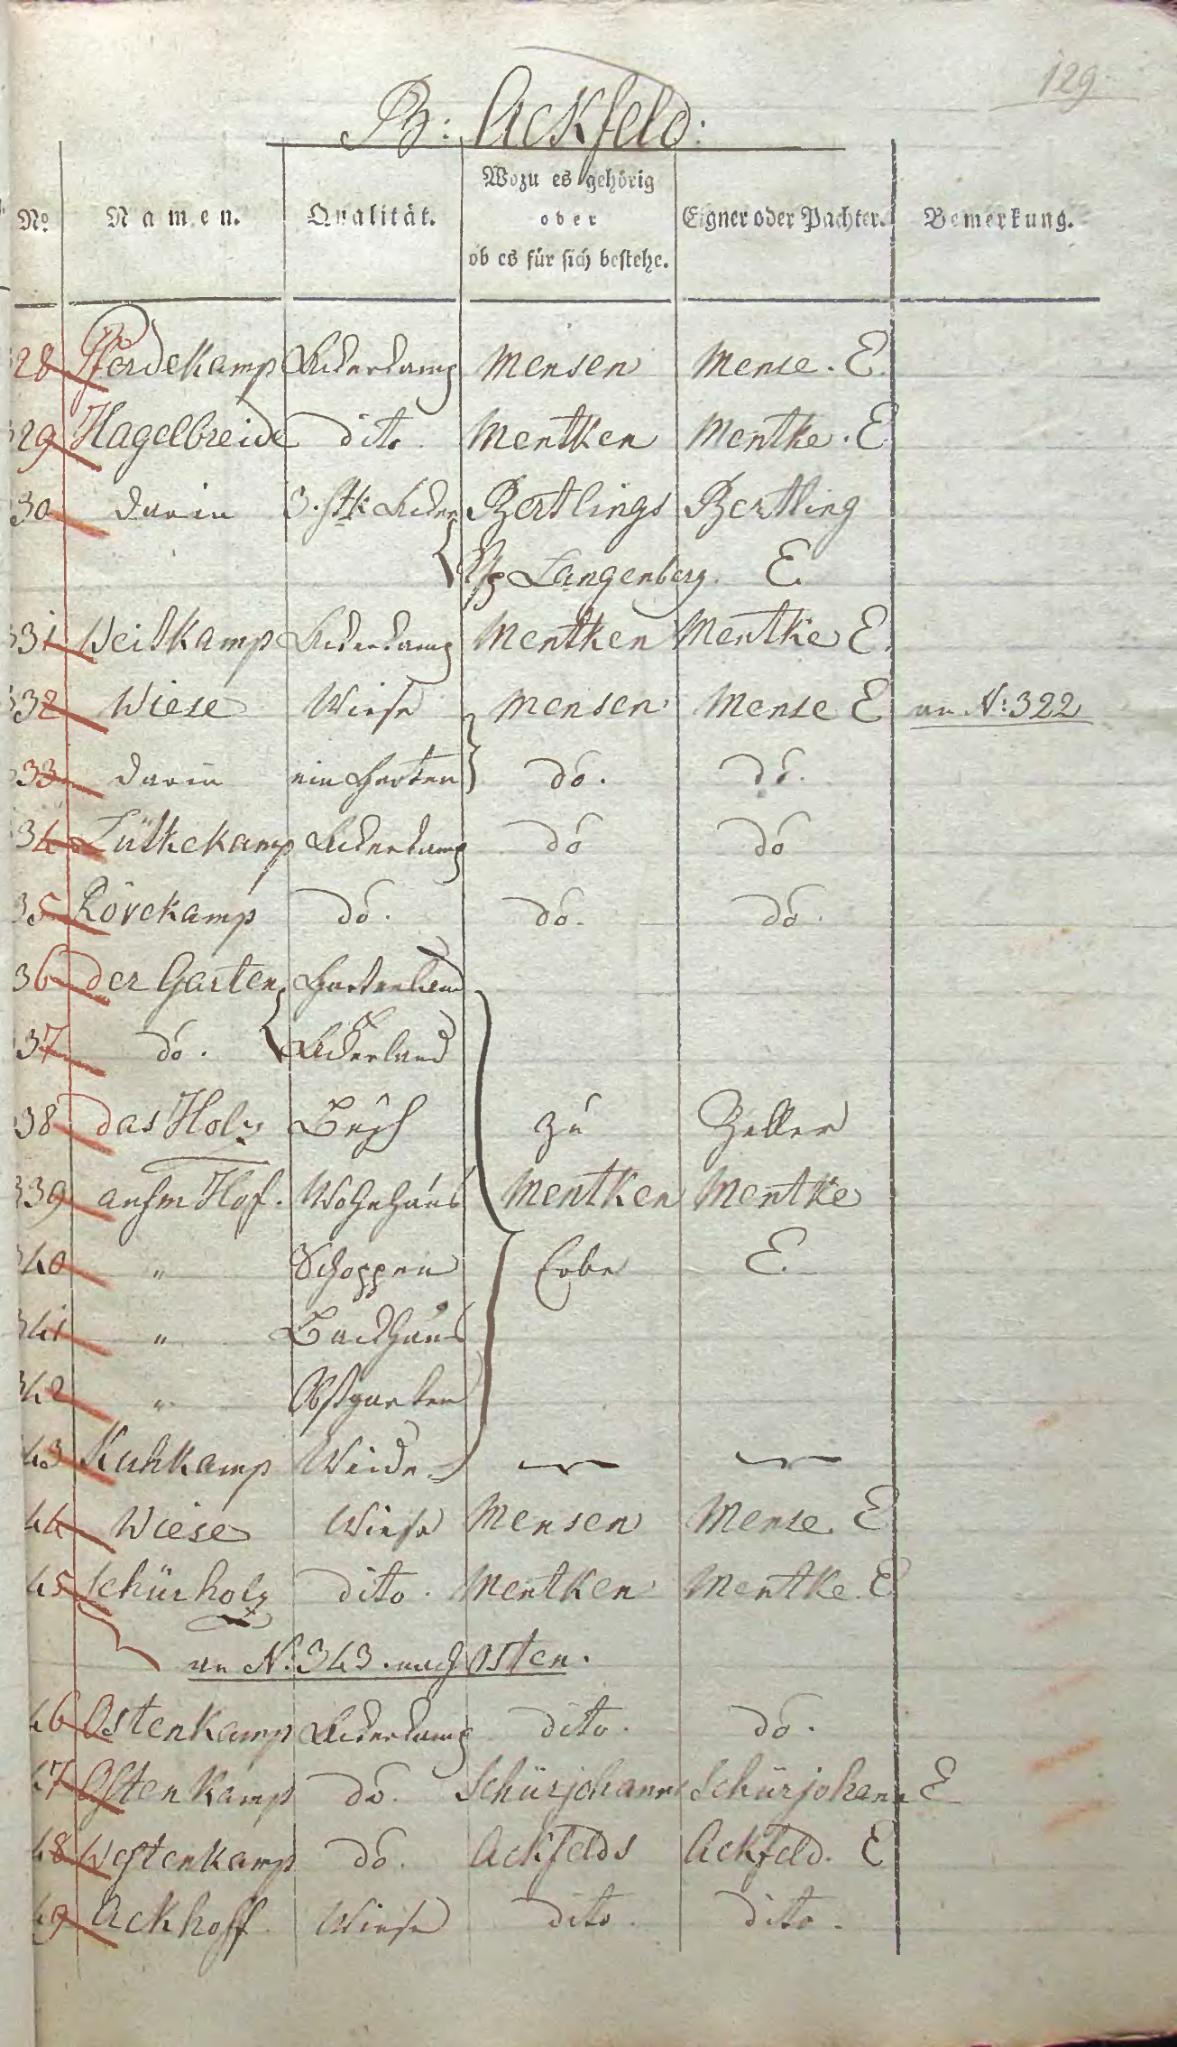 129
B: Ackfeld:
No. Namen. Qualität. Wozu es gehörig oder ob es für sich bestehe. Eigner oder Pachter. Bemerkung.
328 Pferdekamp Ackerkamp Mensen Mense. E.
329 Hagelbreide dito Mentken Mentke. E
30 darin 3. Stk Acker Bertlings Bertling
Langenberg. E.
331 Weitkamp Ackerkamp Mentken Mentke E.
332 Wiese Wiese Mensen Mense E an N: 322
333 darin ein Garten do. do.
34 Lütkekamp Ackerkamp do do
35 Rövekamp do. do. do.
36 der Garten Gartenland
37 do. Ackerland
38 das Holz Busch zu Zeller
339 aufm Hof. Wohnhaus Mentken Mentke
340 " Schoppen Erbe E.
341 " Backhaus
342 " Obstgarten
43 Kuhkamp Weide
44 Wiese Wiese Mensen Mense. E
45 Schürholz dito. Mentken Mentke. E
an N: 343. nach Osten.
46 Ostenkamp Ackerkamp dito. do.
47 Ostenkamp do. Schürjohann Schürjohann E
48 Westenkamp do. Ackfelds Ackfeld. E
49 Ackhoff Wiese dito. dito.